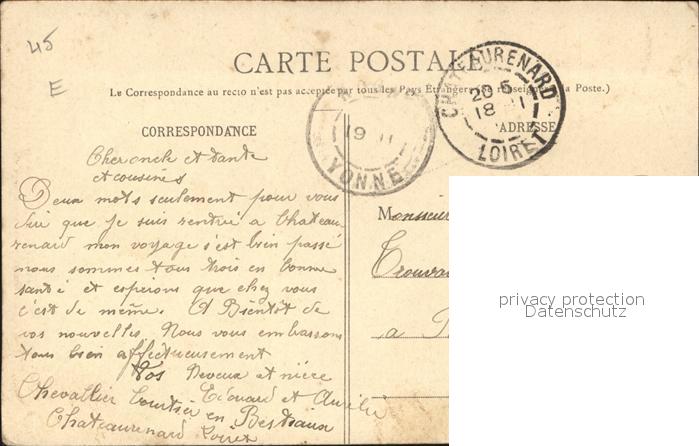 45
E
CARTE POSTALE
Le Correspondance au recto n'est pas acceptée par tous les Pays Étrangers. (Se renseigner à la Poste.)
CHATEAURENARD
20 5
18 11
LOIRET
19 11
YONNE
CORRESPONDANCE
ADRESSE
Cher oncle et tante
et cousines
Deux mots seulement pour vous
dire que je suis rentré a Chateau-
renard mon voyage s'est bien passé
nous sommes tous trois en bonne
santé et esperons que chez vous
c'est de même. A Bientôt de
vos nouvelles. Nous vous embrassons
tous bien affectueusement
Vos Neveux et nièce
Edouard et Aurélie
Chevallier Courtier en Bestiaux
Chateaurenard Loiret
Monsieur
a
privacy protection
Datenschutz